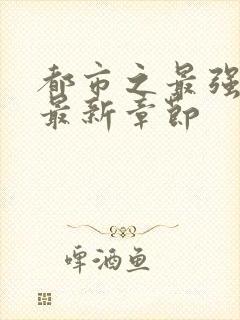 都市之最强
最新章节
啤酒鱼